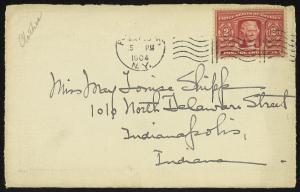 Clothes
5 PM
1904
N.Y.
2 2
Miss May Louise Shipp
1010 North Delaware Street
Indianapolis,
Indiana